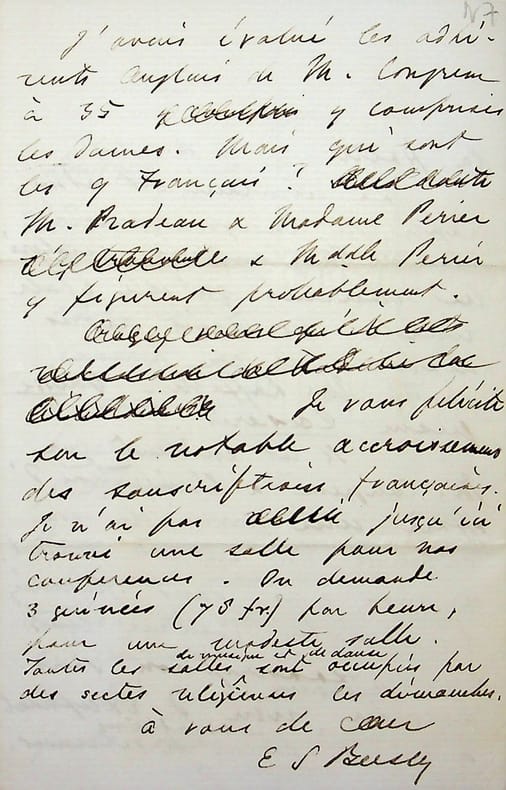 N7
J'avais évalué les adhé-
rents Anglais de M. Congreve
à 35 y comprises
les Dames. Mais qui sont
les 9 Français ?
M. Pradeau & Madame Perier
& Mdlle Perier
y figurent probablement.
Je vous félicite
sur le notable accroissement
des souscriptions françaises.
Je n'ai pas jusqu'ici
trouvé une salle pour nos
conférences. On demande
3 guinées (78 fr.) par heure,
pour une modeste salle.
de musique et de danse
Toutes les salles sont occupées par
des sectes religieuses les dimanches.
à vous de cœur
E S Beesly